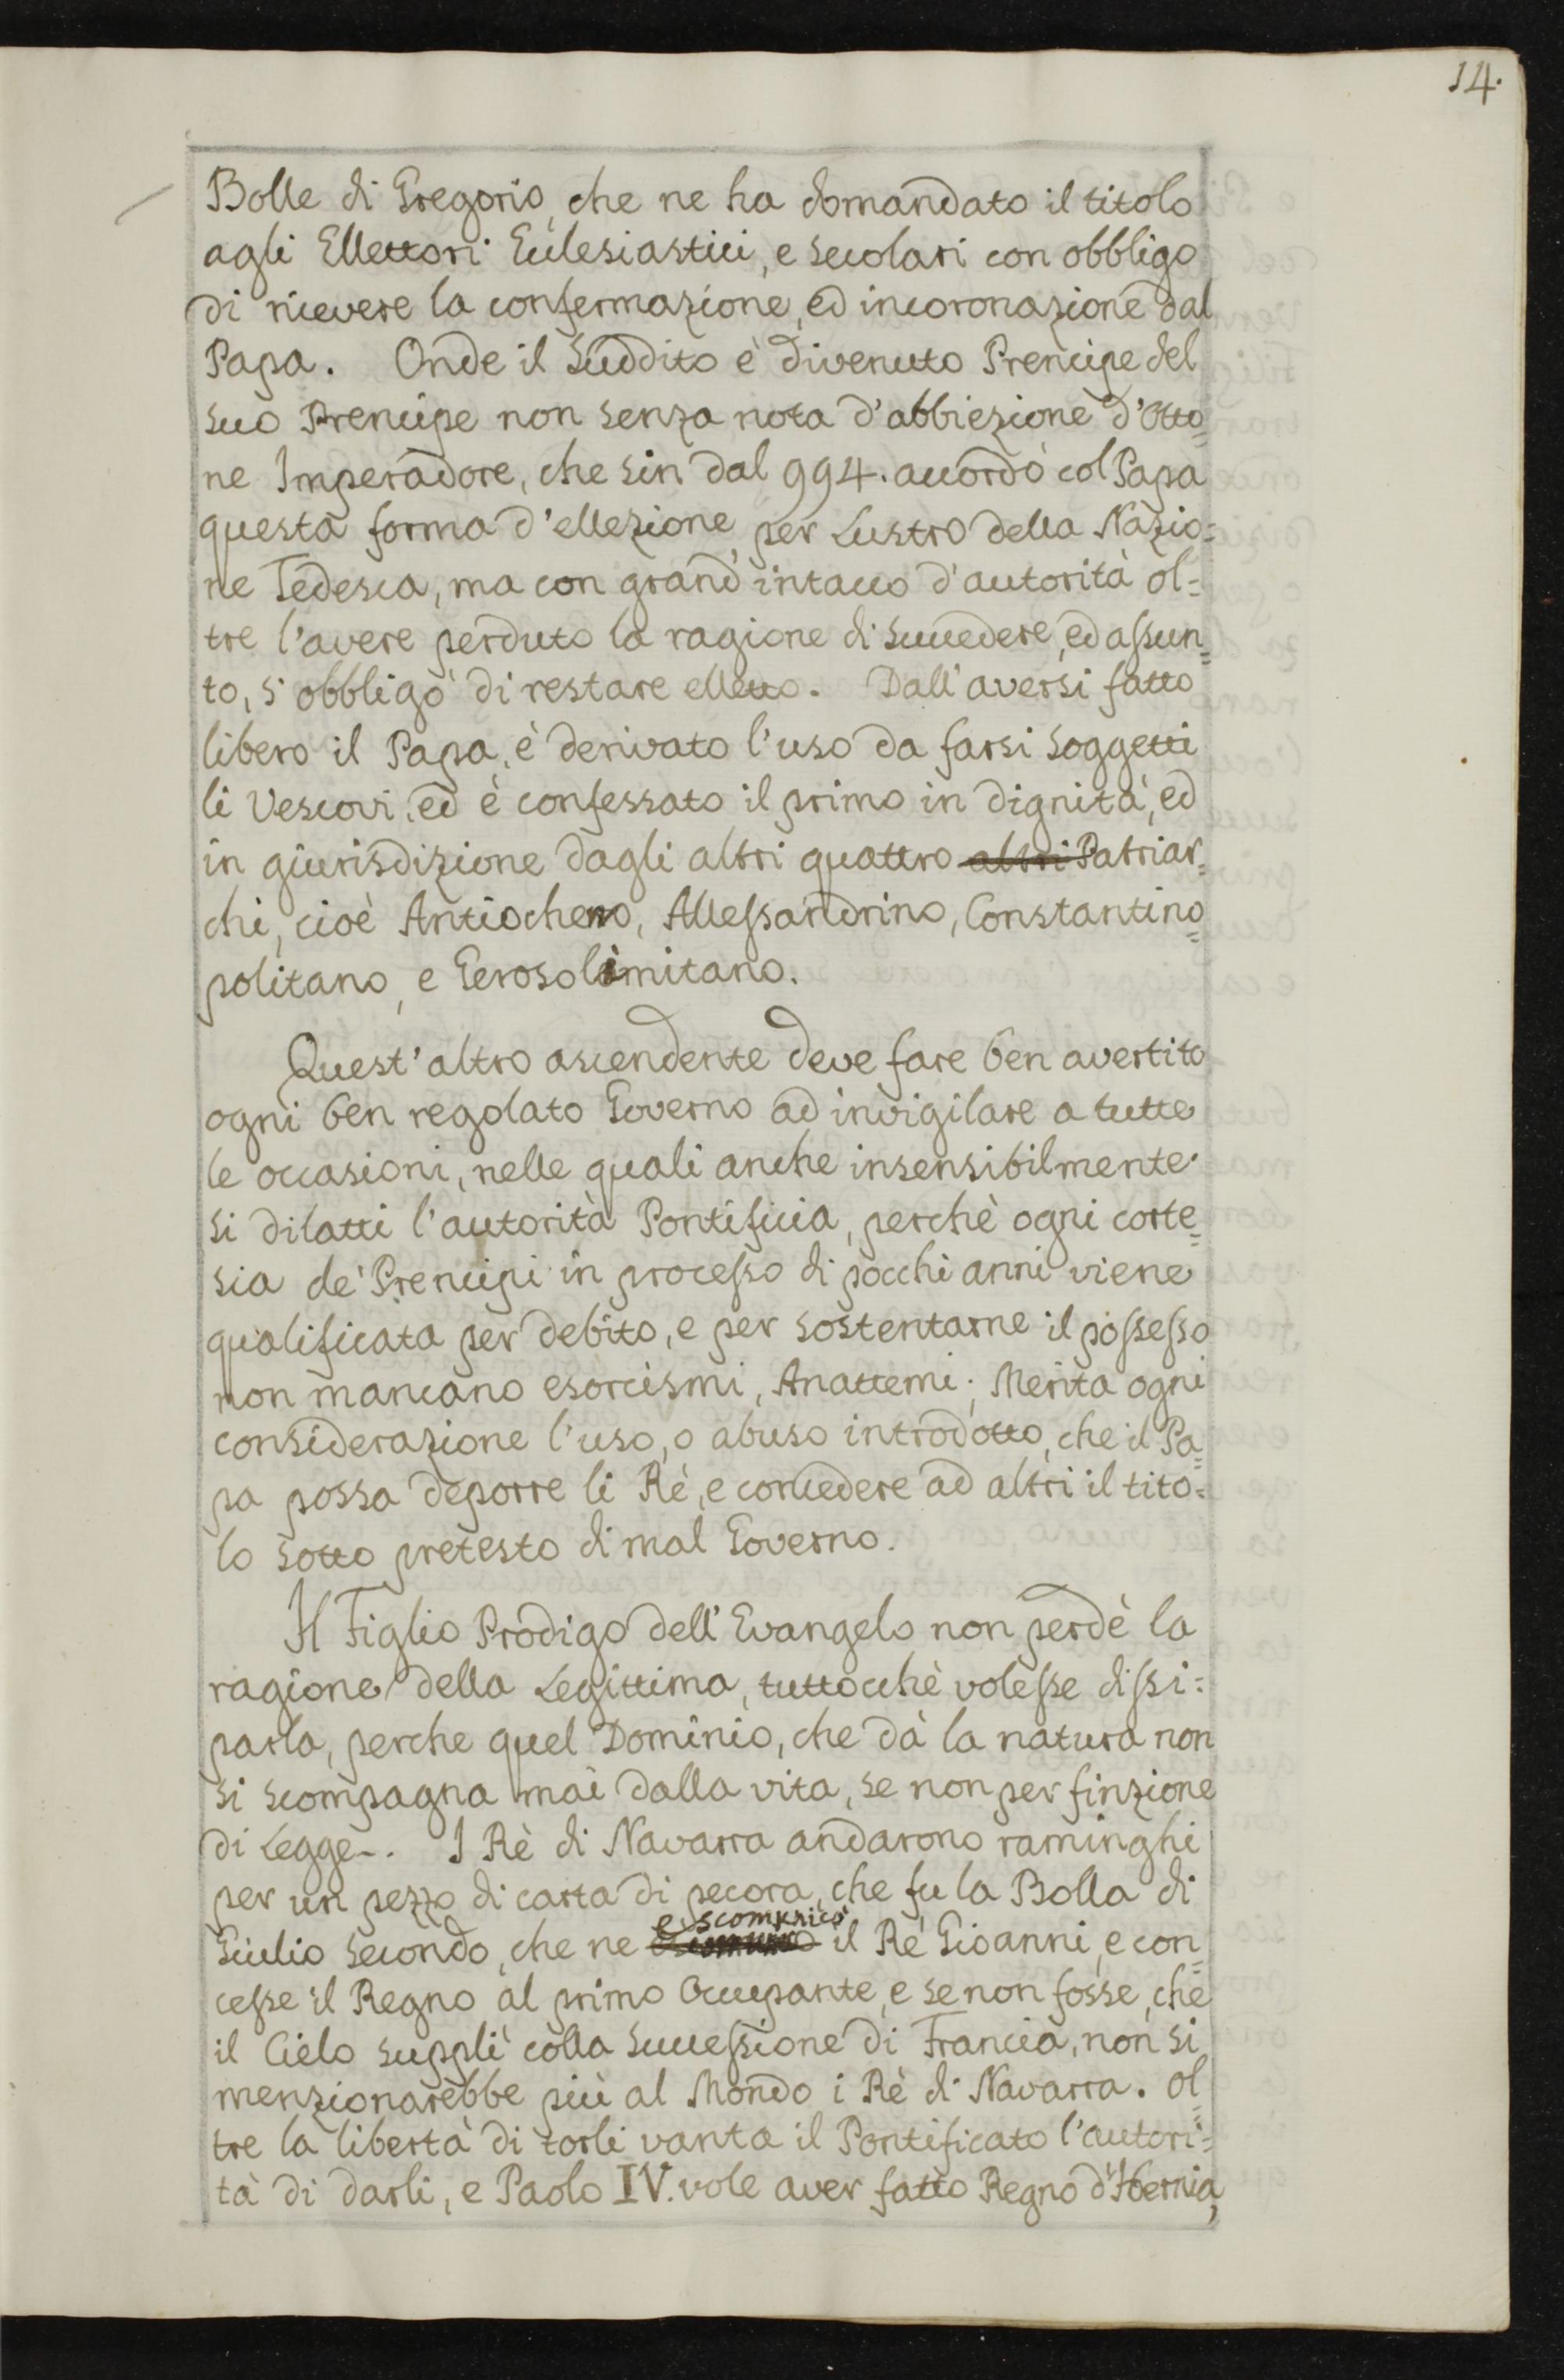 14.
Bolle di Gregorio, che ne ha domandato il titolo
agli Ellettori Ecclesiastici, e secolari con obbligo
di ricevere la confermazione, ed incoronazione dal
Papa. Onde il Suddito è divenuto Prencipe del
suo Prencipe non senza nota d'abbiezione d'Otto=
ne Imperadore, che sin dal 994. accordò col Papa
questa forma d'ellezione per Lustro della Nazio=
ne Tedesca, ma con grand'intacco d'autorità ol=
tre l'avere perduto la ragione di succedere, ed assun=
to, s'obbligò di restare elletto. Dall'aversi fatto
libero il Papa, è derivato l'uso da farsi soggetti
li Vescovi, ed è confessato il primo in dignità, ed
in giurisdizione dagli altri quattro altri Patriar=
chi, cioè Antiocheno, Allessandrino, Constantino=
politano, e Gerosolimitano.
Quest'altro ascendente deve fare ben avertito
ogni ben regolato Governo ad invigilare a tutte
le occasioni, nelle quali anche insensibilmente
si dilatti l'autorità Pontificia, perchè ogni corte=
sia de' Prencipi in processo di pocchi anni viene
qualificata per debito, e per sostentarne il possesso
non mancano esorcismi, Anattemi; Merita ogni
considerazione l'uso, o abuso introdotto, che il Pa=
pa possa deporre li Rè, e concedere ad altri il tito=
lo sotto pretesto di mal Governo.
Il Figlio Prodigo dell'Evangelo non perdè la
ragione della Legittima, tuttocchè volesse dissi=
parla, perche quel Dominio, che dà la natura non
si scompagna mai dalla vita, se non per finzione
di Legge. I Rè di Navarra andarono raminghi
per un pezzo di carta di pecora, che fu la Bolla di
Giulio Secondo, che ne escomunicò il Rè Gioanni, e con=
cesse il Regno al primo Occupante, e se non fosse, che
il Cielo supplì colla Successione di Francia, non si
menzionarebbe più al Mondo i Rè di Navarra. Ol=
tre la libertà di torli vanta il Pontificato l'autori=
tà di darli, e Paolo IV. vole aver fatto Regno d'Ibernia,